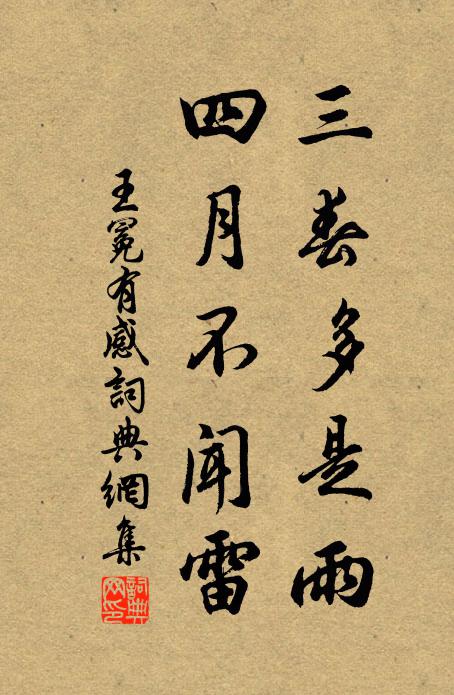 三春多是雨
四月不闻雷
王冕有感詞典網集
詞典
网印